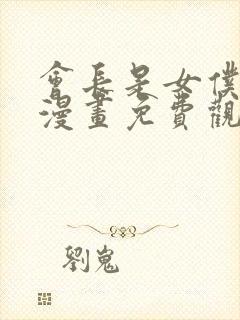 會長是女僕
漫畫免費觀
劉嵬